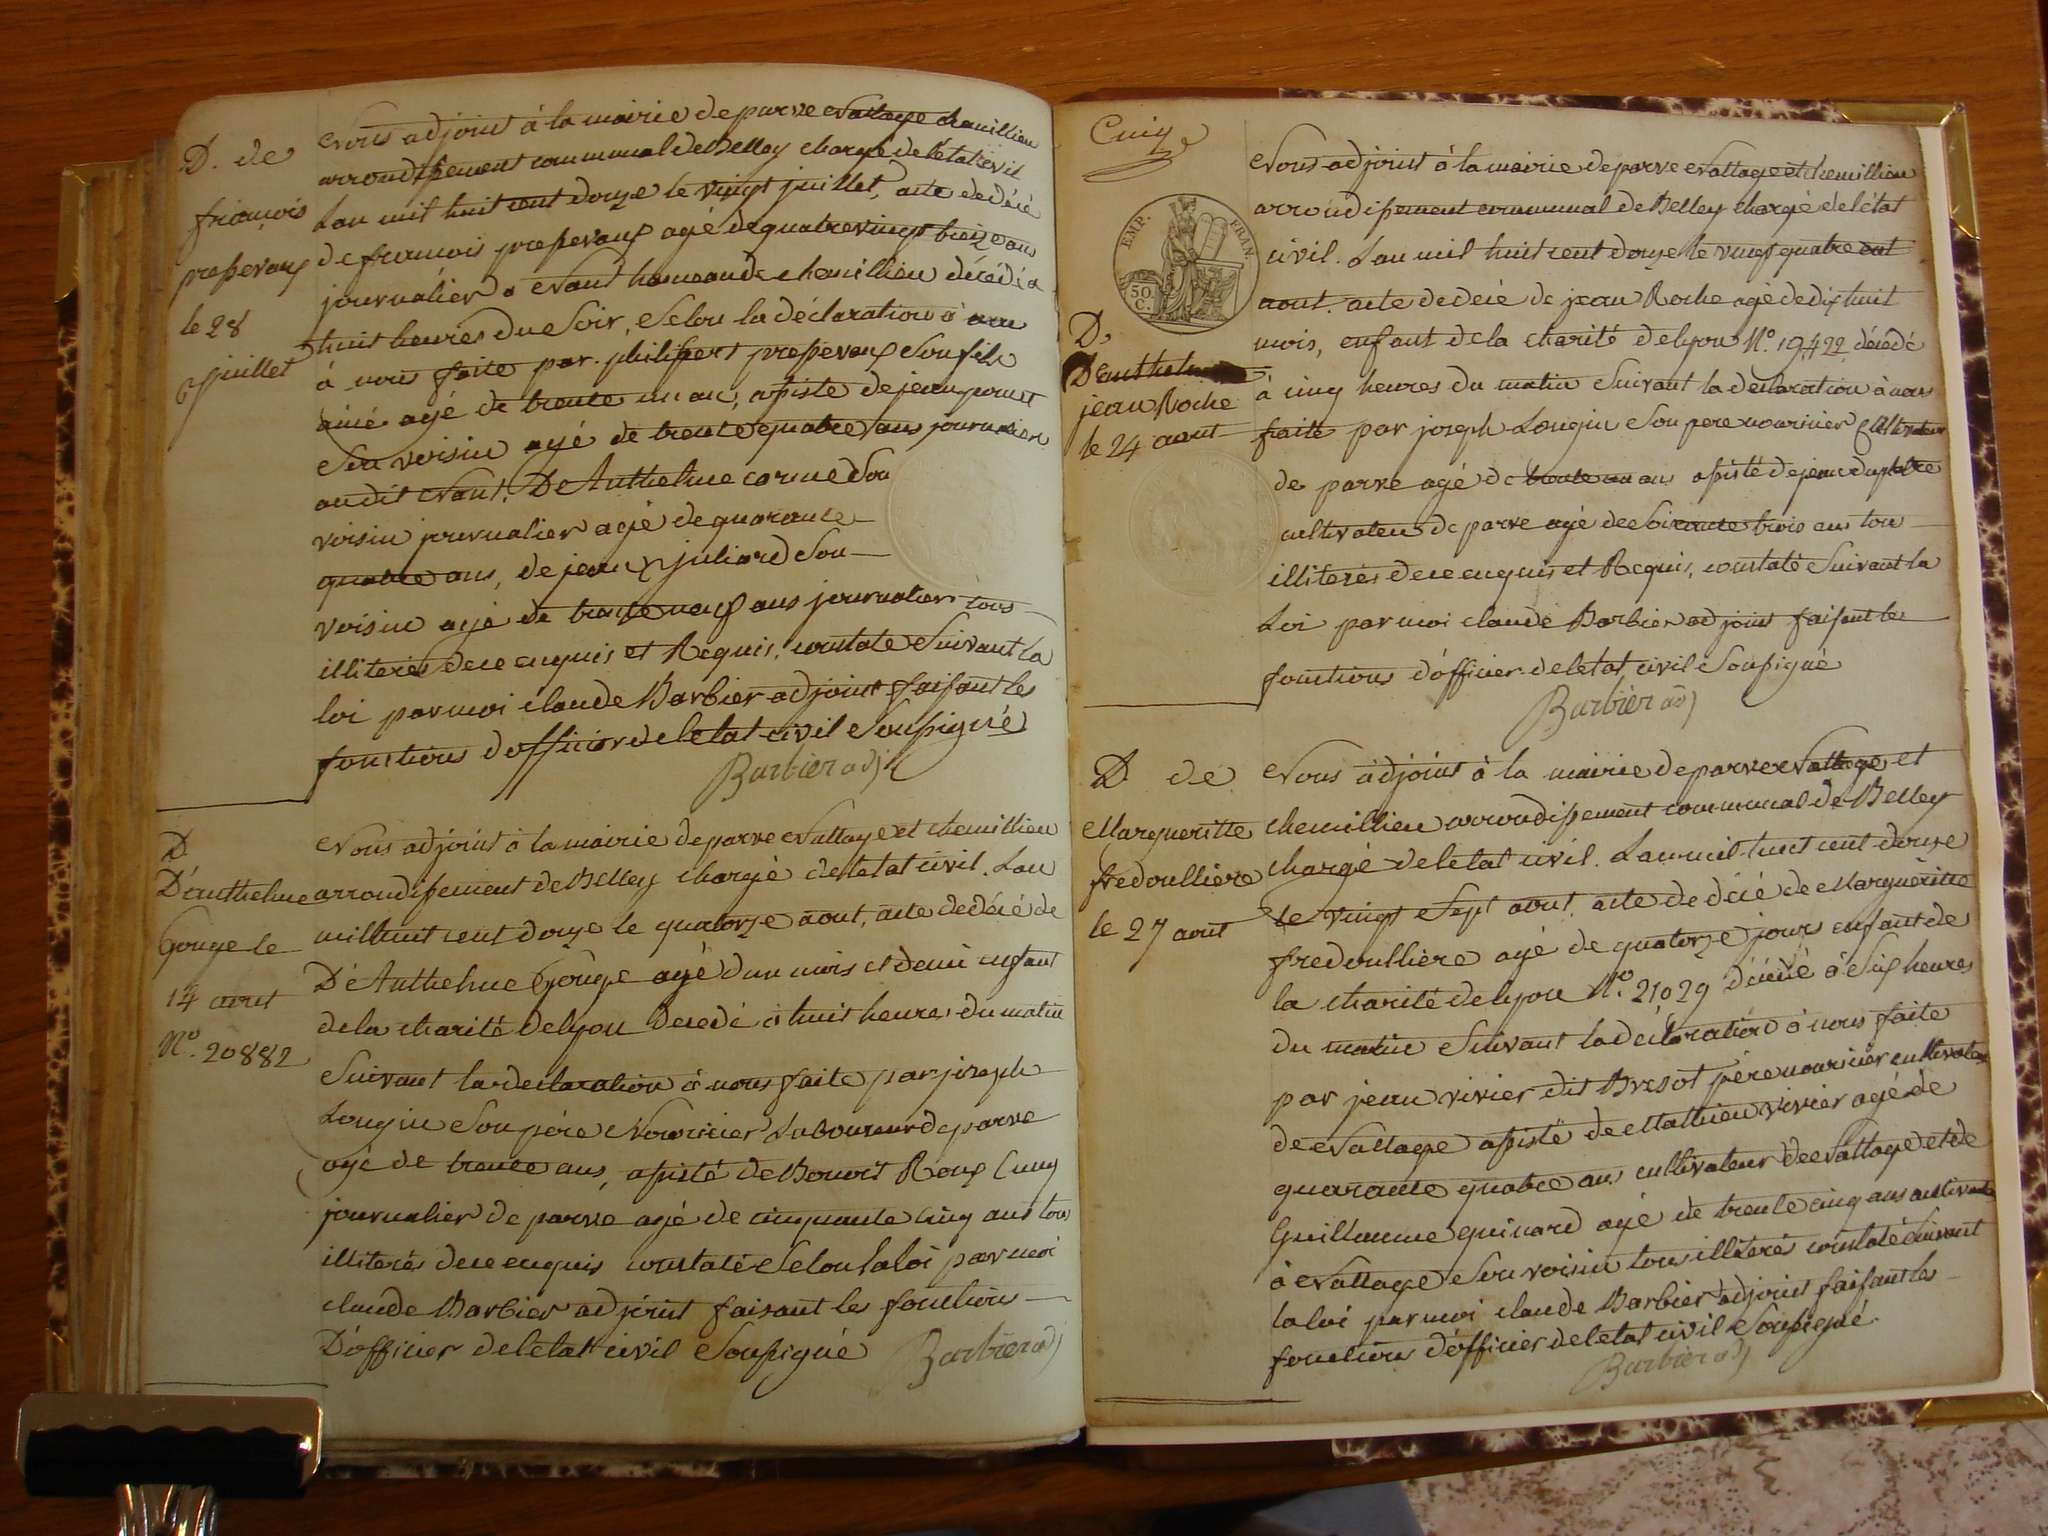 D. de
françois
prepevaux
le 28
juillet
Nous adjoint à la mairie de parve Nattage chemillieu
arrondissement communal de Belley chargé de letat civil
Lan mil huit cent douze le vingt juillet, acte de décé
de francois prepevaux agé de quatrevingt treize ans
journalier a Nant hameau de chemillieu décédé a
huit heures du Soir, Selon la déclaration à
à nous faite par philibert prepevaux Son fils
ainé agé de trente un an, apisté de jean
Son voisin agé de trente quatre ans journalier
audit Nant, De Anthelme Son
voisin journalier agé de quarante
quatre ans, de jean juliard Son
voisin agé de trente neuf ans journalier tous
illiterés de ce enquis et Requis, constaté Suivant la
loi par moi claude Barbier adjoint faisant les
fonctions dofficier de letat civil Soupigné
Barbier adj
D
D'anthelme
Gouge le
14 aout
No. 20882
Nous adjoint à la mairie de parve Nattage et chemillieu
arrondissement de Belley chargé de letat civil. Lan
mil huit cent douze le quatorze aout, acte de décé de
D'Anthelme Gouge agé dun mois et demi enfant
de la charité de lyon decedé à huit heures du matin
Suivant la declaration à nous faite par joseph
Longin Son père Nourricier Laboureur de parve
agé de trente ans, apisté de Benoit Roux Cuny
journalier de parve agé de cinquante cinq ans tous
illiterés de ce enquis constaté Selon la loi par moi
claude Barbier adjoint faisant les fonctions
D'officier de letat civil Soupigné
Barbier adj
Cinq
EMP. FRAN.
50 C.
D.
D'anthelme
jean Roche
le 24 aout
Nous adjoint à la mairie de parve Nattage et chemillieu
arrondissement communal de Belley chargé de létat
civil. Lan mil huit cent douze le vingt quatre
aout. acte de decé de jean Roche agé de dix huit
mois, enfant de la charité de lyon No. 19422 décédé
à cinq heures du matin Suivant la declaration à nous
faite par joseph Longin Son pere nouricier Cultivateur
de parve agé de trente un ans apisté de jean
cultivateur de parve agé de Soixante trois ans tous
illiterés de ce enquis et Requis, constaté Suivant la
Loi par moi claude Barbier adjoint faisant les
fonctions d'officier de letat civil Soupigné
Barbier adj
D de
Margueritte
fredoulliere
le 27 aout
Nous adjoint à la mairie de parve Nattage et
chemillieu arrondissement communal de Belley
chargé de letat civil. Lan mil huit cent douze
le vingt Sept aout, acte de décé de Margueritte
fredoulliere agé de quatorze jours enfant de
la charité de lyon No. 21029 décédé à Six heures
du matin Suivant la déclaration à nous faite
par jean vivier dit Brisot père nouricier cultivateur
de Nattage apisté de Mathieu vivier agé de
quarante quatre ans cultivateur de Nattage et de
Guillaume guinard agé de trente cinq ans cultivateur
à Nattage Son voisin tous illiterés constaté Suivant
la loi par moi claude Barbier adjoint faisant les
fonctions d'officier de letat civil Soupigné
Barbier adj